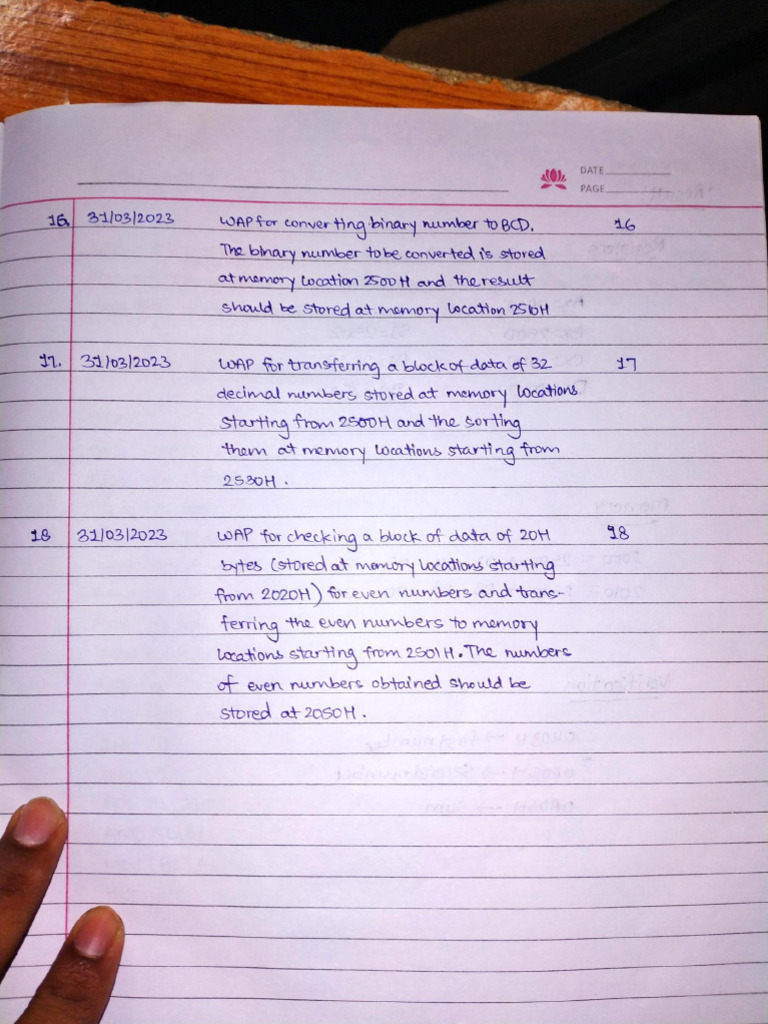 DATE
PAGE
16. 31/03/2023 WAP for converting binary number to BCD. 16
The binary number to be converted is stored
at memory location 2500H and the result
should be stored at memory location 2510H
17. 31/03/2023 WAP for transferring a block of data of 32 17
decimal numbers stored at memory locations
starting from 2500H and the sorting
them at memory locations starting from
2530H.
18 31/03/2023 WAP for checking a block of data of 20H 18
bytes (stored at memory locations starting
from 2020H) for even numbers and trans-
ferring the even numbers to memory
locations starting from 2501H. The numbers
of even numbers obtained should be
stored at 2050H.